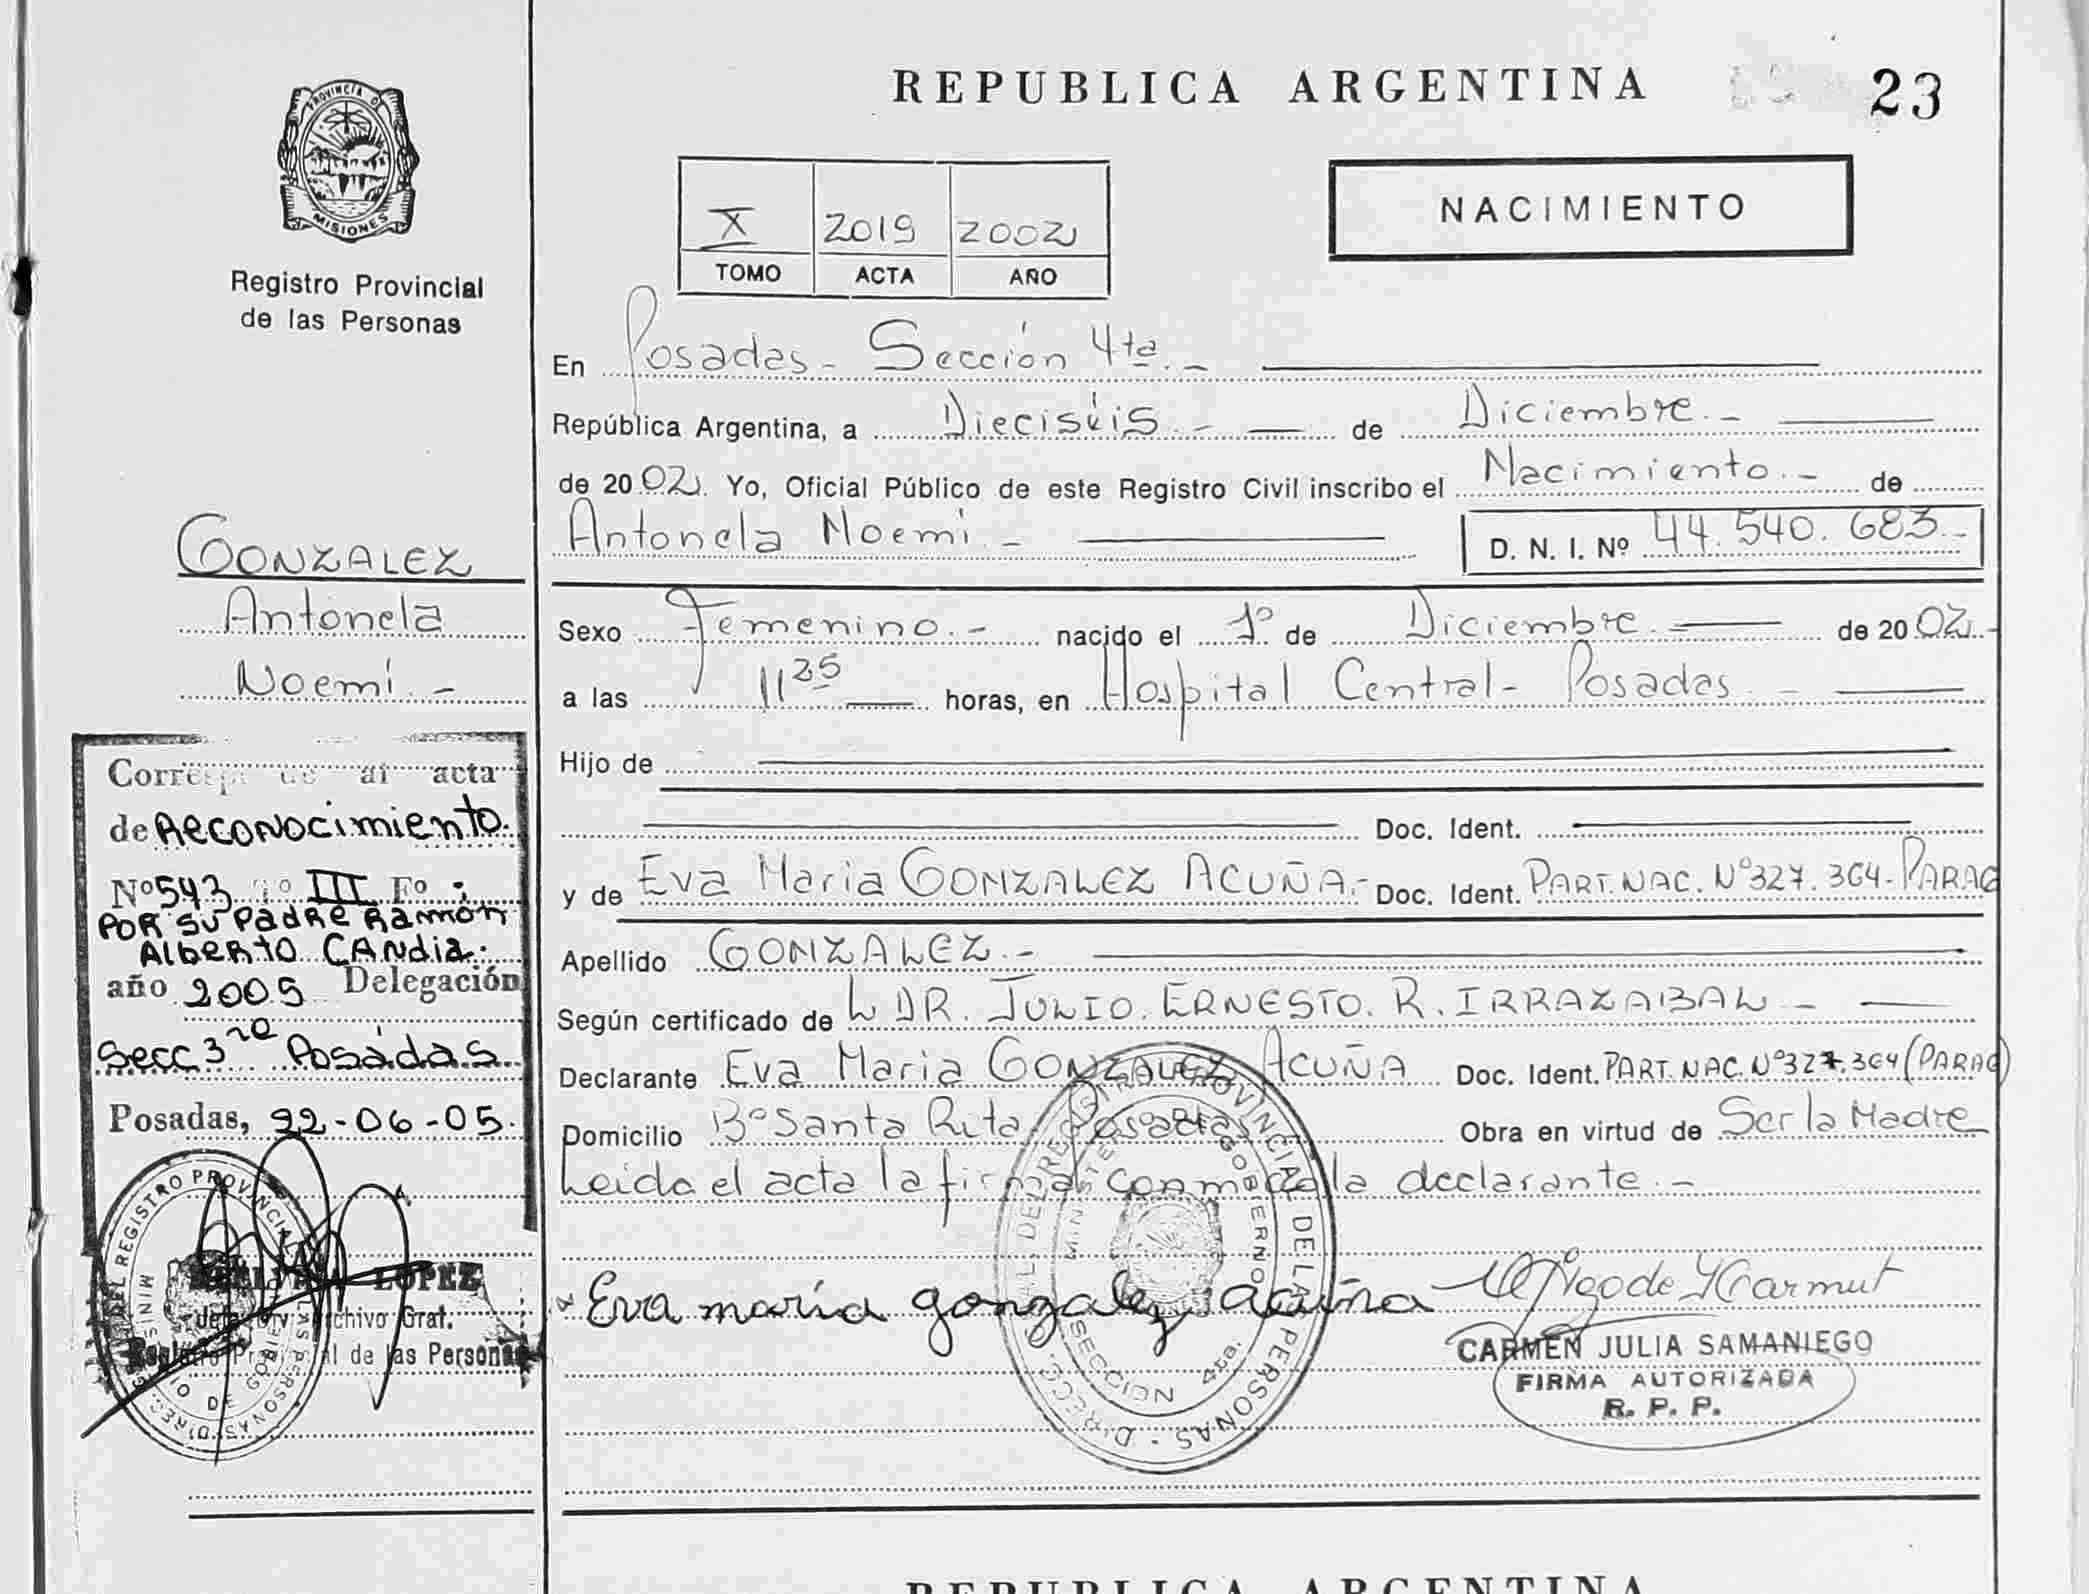 PROVINCIA D
MISIONES
Registro Provincial
de las Personas
GONZALEZ
Antonela
Noemí.-
al acta
de Reconocimiento.
Nº 543 Tº III Fº
POR SU PADRE RAMÓN
ALBERTO CANDIA.
año 2005 Delegación
Secc 3ra Posadas
Posadas, 22-06-05.
LOPEZ
Archivo Gral.
de las Personas
REPUBLICA ARGENTINA
23
X 2019 2002
TOMO ACTA AÑO
NACIMIENTO
En Posadas- Sección 4ta.-
República Argentina, a Dieciséis.- de Diciembre.-
de 2002. Yo, Oficial Público de este Registro Civil inscribo el Nacimiento.- de
Antonela Noemí.- D. N. I. Nº 44.540.683.-
Sexo Femenino.- nacido el 1º de Diciembre.- de 2002.-
a las 11 35 horas, en Hospital Central- Posadas.-
Hijo de
Doc. Ident.
y de Eva Maria GONZALEZ ACUÑA.- Doc. Ident. PART. NAC. Nº 327.364- PARAG
Apellido GONZALEZ.-
Según certificado de L DR. JULIO. ERNESTO. R. IRRAZABAL.-
Declarante Eva Maria GONZALEZ ACUÑA Doc. Ident. PART. NAC. Nº 327.364 (PARAG)
Domicilio Bº Santa Rita, Posadas Obra en virtud de Ser la Madre
Leida el acta la firma conmigo la declarante.-
Eva maría gonzalez acuña
CARMEN JULIA SAMANIEGO
FIRMA AUTORIZADA
R. P. P.
DIREC. GRAL. DEL REGISTRO PROVINCIAL DE LAS PERSONAS
GOBIERNO
SECCION 4ta.
REPUBLICA ARGENTINA